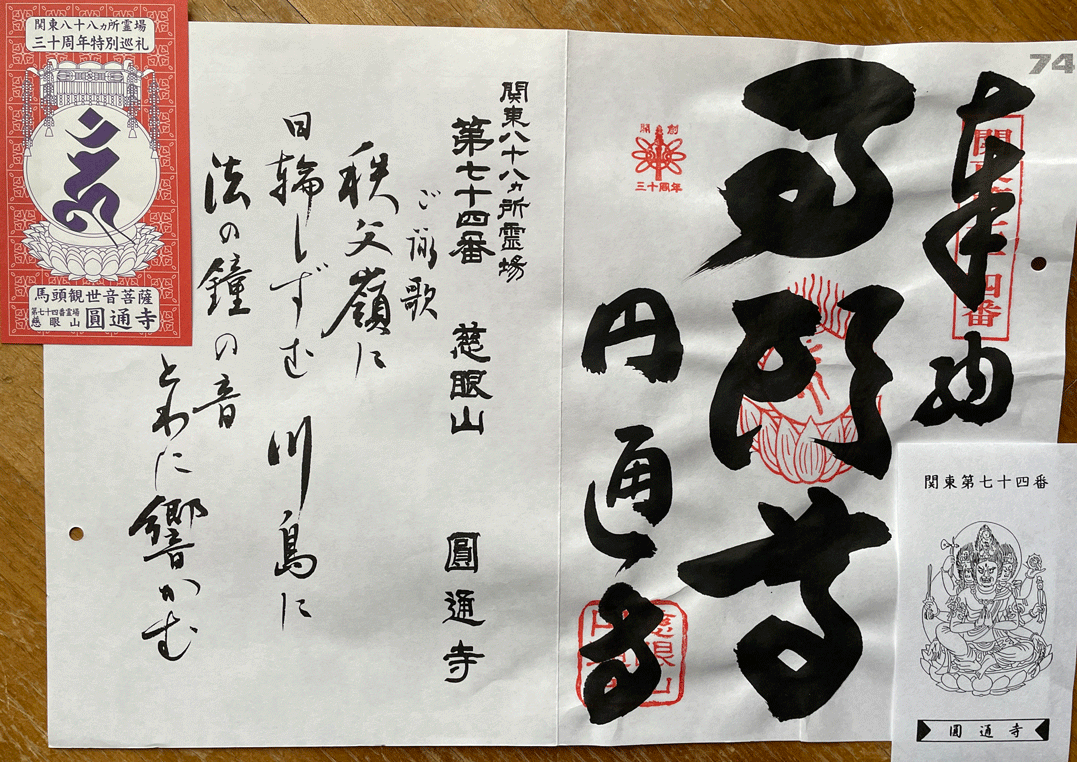 74
奉納
関東七十四番
馬頭尊
円通寺
開創
三十周年
慈眼山
関東八十八ヵ所霊場
第七十四番 慈眼山 圓通寺
ご詠歌
秩父嶺に
日輪しずむ 川島に
法の鐘の音
とわに響かむ
関東八十八ヵ所霊場
三十周年特別巡礼
馬頭観世音菩薩
第七十四番霊場
慈眼山 圓通寺
関東第七十四番
圓通寺